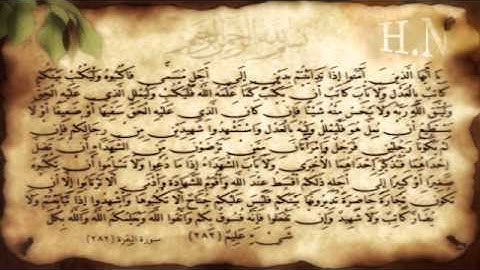 بسم الله الرحمن الرحيم
H.N
يَا أَيُّهَا الَّذِينَ آمَنُوا إِذَا تَدَايَنْتُمْ بِدَيْنٍ إِلَى أَجَلٍ مُسَمًّى فَاكْتُبُوهُ وَلْيَكْتُبْ بَيْنَكُمْ
كَاتِبٌ بِالْعَدْلِ وَلَا يَأْبَ كَاتِبٌ أَنْ يَكْتُبَ كَمَا عَلَّمَهُ اللَّهُ فَلْيَكْتُبْ وَلْيُمْلِلِ الَّذِي عَلَيْهِ الْحَقُّ
وَلْيَتَّقِ اللَّهَ رَبَّهُ وَلَا يَبْخَسْ مِنْهُ شَيْئًا فَإِنْ كَانَ الَّذِي عَلَيْهِ الْحَقُّ سَفِيهًا أَوْ ضَعِيفًا أَوْ لَا
يَسْتَطِيعُ أَنْ يُمِلَّ هُوَ فَلْيُمْلِلْ وَلِيُّهُ بِالْعَدْلِ وَاسْتَشْهِدُوا شَهِيدَيْنِ مِنْ رِجَالِكُمْ فَإِنْ
لَمْ يَكُونَا رَجُلَيْنِ فَرَجُلٌ وَامْرَأَتَانِ مِمَّنْ تَرْضَوْنَ مِنَ الشُّهَدَاءِ أَنْ تَضِلَّ
إِحْدَاهُمَا فَتُذَكِّرَ إِحْدَاهُمَا الْأُخْرَى وَلَا يَأْبَ الشُّهَدَاءُ إِذَا مَا دُعُوا وَلَا تَسْأَمُوا أَنْ تَكْتُبُوهُ
صَغِيرًا أَوْ كَبِيرًا إِلَى أَجَلِهِ ذَلِكُمْ أَقْسَطُ عِنْدَ اللَّهِ وَأَقْوَمُ لِلشَّهَادَةِ وَأَدْنَى أَلَّا تَرْتَابُوا إِلَّا أَنْ
تَكُونَ تِجَارَةً حَاضِرَةً تُدِيرُونَهَا بَيْنَكُمْ فَلَيْسَ عَلَيْكُمْ جُنَاحٌ أَلَّا تَكْتُبُوهَا وَأَشْهِدُوا إِذَا تَبَايَعْتُمْ وَلَا
يُضَارَّ كَاتِبٌ وَلَا شَهِيدٌ وَإِنْ تَفْعَلُوا فَإِنَّهُ فُسُوقٌ بِكُمْ وَاتَّقُوا اللَّهَ وَيُعَلِّمُكُمُ اللَّهُ وَاللَّهُ بِكُلِّ
شَيْءٍ عَلِيمٌ (٢٨٢) سورة البقرة (٢٨٢)